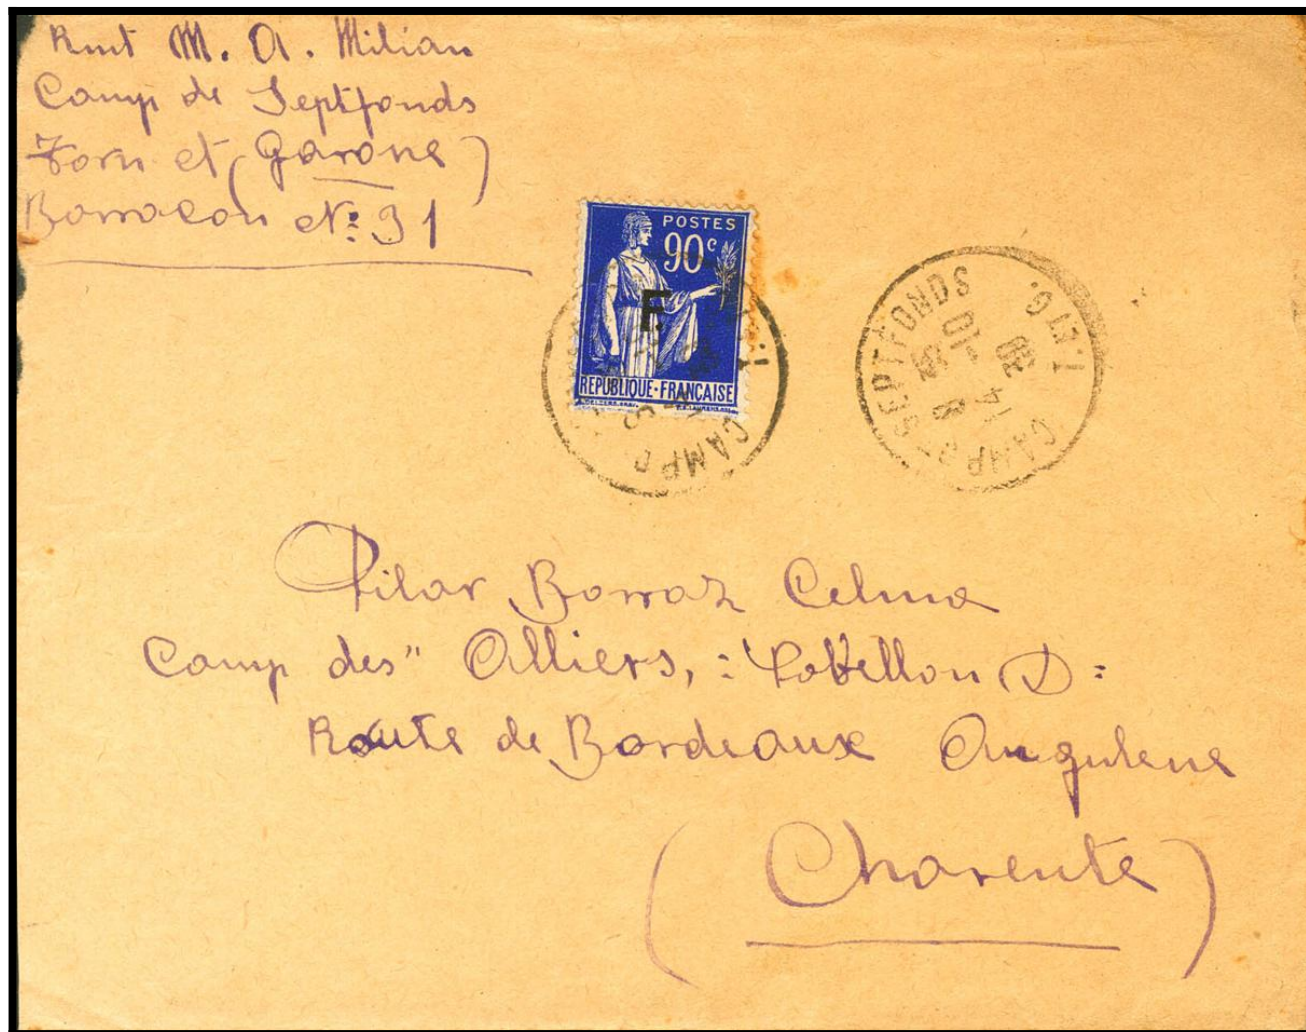 Rmt M. A. Milian
Camp de Septfonds
Torn et (Garone)
Barracon Nº: 31
POSTES
90 c
F
REPUBLIQUE-FRANÇAISE
CAMP
CAMP SEPTFONDS T.ET G.
14 30
8
10
Pilar Borraz Celma
Camp des" Alliers, : Pabellon D:
Route de Bordeaux Angulene
(Charente)